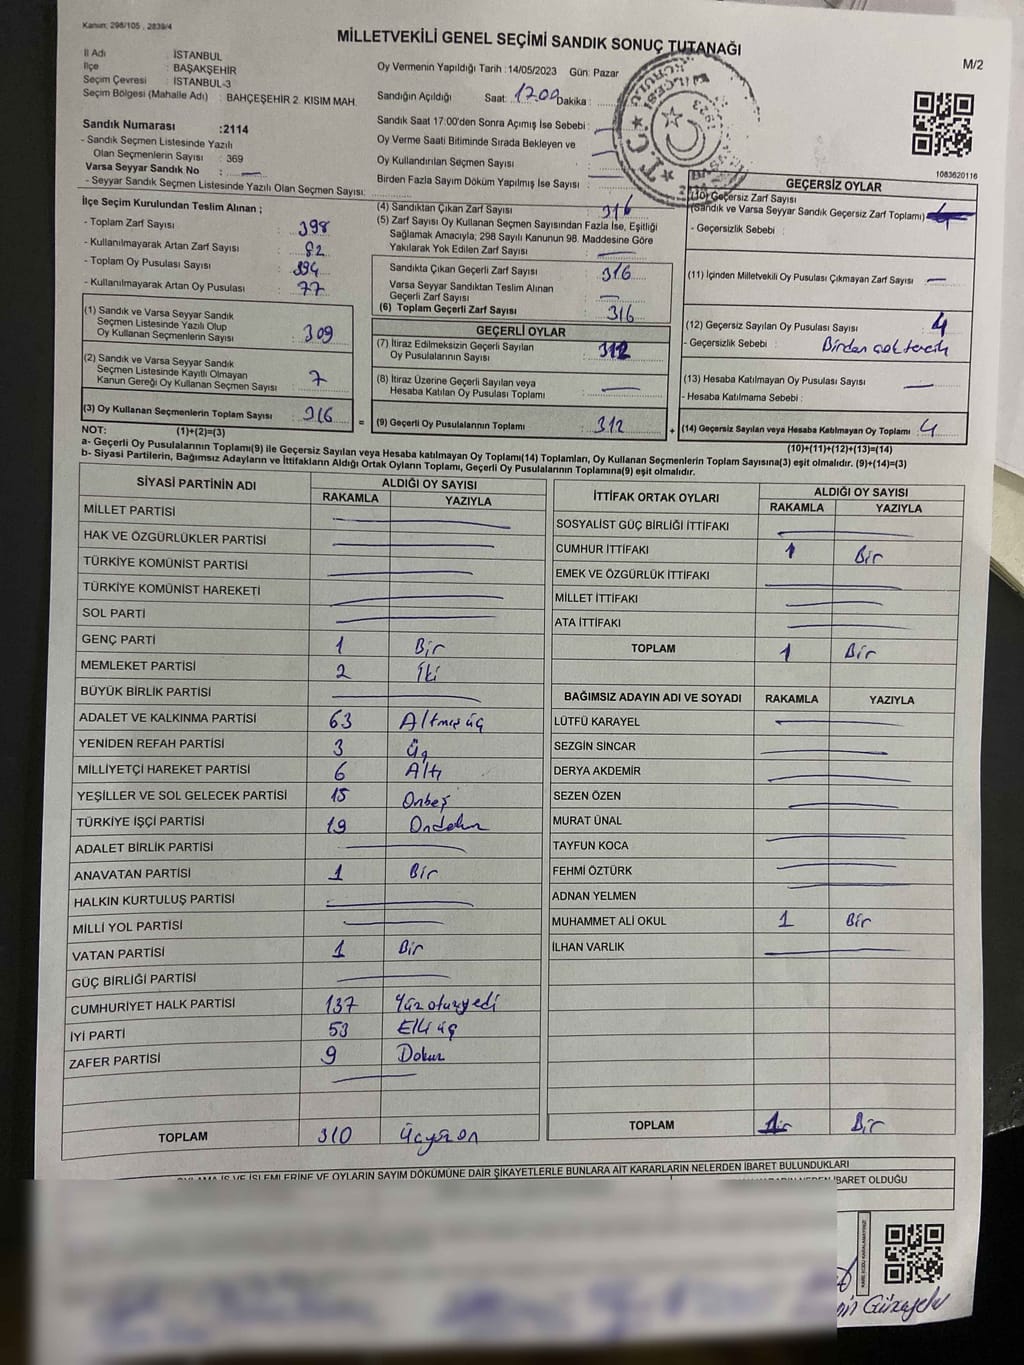 Kanun: 298/105 , 2839/4
MİLLETVEKİLİ GENEL SEÇİMİ SANDIK SONUÇ TUTANAĞI
M/2
İl Adı : İSTANBUL
İlçe : BAŞAKŞEHİR
Seçim Çevresi : İSTANBUL-3
Seçim Bölgesi (Mahalle Adı) : BAHÇEŞEHİR 2. KISIM MAH.
Oy Vermenin Yapıldığı Tarih : 14/05/2023 Gün: Pazar
Sandığın Açıldığı Saat: 17.00 Dakika :
Sandık Saat 17:00'den Sonra Açımış İse Sebebi :
Oy Verme Saati Bitiminde Sırada Bekleyen ve
Oy Kullandırılan Seçmen Sayısı :
Birden Fazla Sayım Döküm Yapılmış İse Sayısı :
Sandık Numarası : 2114
- Sandık Seçmen Listesinde Yazılı
Olan Seçmenlerin Sayısı : 369
Varsa Seyyar Sandık No : —
- Seyyar Sandık Seçmen Listesinde Yazılı Olan Seçmen Sayısı:
1083620116
İlçe Seçim Kurulundan Teslim Alınan ;
- Toplam Zarf Sayısı : 398
- Kullanılmayarak Artan Zarf Sayısı : 82
- Toplam Oy Pusulası Sayısı : 394
- Kullanılmayarak Artan Oy Pusulası : 77
(1) Sandık ve Varsa Seyyar Sandık
Seçmen Listesinde Yazılı Olup
Oy Kullanan Seçmenlerin Sayısı : 309
(2) Sandık ve Varsa Seyyar Sandık
Seçmen Listesinde Kayıtlı Olmayan
Kanun Gereği Oy Kullanan Seçmen Sayısı : 7
(3) Oy Kullanan Seçmenlerin Toplam Sayısı : 316
(4) Sandıktan Çıkan Zarf Sayısı : 316
(5) Zarf Sayısı Oy Kullanan Seçmen Sayısından Fazla İse, Eşitliği
Sağlamak Amacıyla; 298 Sayılı Kanunun 98. Maddesine Göre
Yakılarak Yok Edilen Zarf Sayısı : —
Sandıkta Çıkan Geçerli Zarf Sayısı : 316
Varsa Seyyar Sandıktan Teslim Alınan
Geçerli Zarf Sayısı : —
(6) Toplam Geçerli Zarf Sayısı : 316
GEÇERLİ OYLAR
(7) İtiraz Edilmeksizin Geçerli Sayılan
Oy Pusulalarının Sayısı : 312
(8) İtiraz Üzerine Geçerli Sayılan veya
Hesaba Katılan Oy Pusulası Toplamı : —
= (9) Geçerli Oy Pusulalarının Toplamı : 312
GEÇERSİZ OYLAR
(10) Geçersiz Zarf Sayısı
(Sandık ve Varsa Seyyar Sandık Geçersiz Zarf Toplamı) :
- Geçersizlik Sebebi :
(11) İçinden Milletvekili Oy Pusulası Çıkmayan Zarf Sayısı : —
(12) Geçersiz Sayılan Oy Pusulası Sayısı : 4
- Geçersizlik Sebebi : Birden çok tercih
(13) Hesaba Katılmayan Oy Pusulası Sayısı : —
- Hesaba Katılmama Sebebi :
+ (14) Geçersiz Sayılan veya Hesaba Katılmayan Oy Toplamı : 4
NOT: (1)+(2)=(3)
(10)+(11)+(12)+(13)=(14)
a- Geçerli Oy Pusulalarının Toplamı(9) ile Geçersiz Sayılan veya Hesaba katılmayan Oy Toplamı(14) Toplamları, Oy Kullanan Seçmenlerin Toplam Sayısına(3) eşit olmalıdır. (9)+(14)=(3)
b- Siyasi Partilerin, Bağımsız Adayların ve İttifakların Aldığı Ortak Oyların Toplamı, Geçerli Oy Pusulalarının Toplamına(9) eşit olmalıdır.
SİYASİ PARTİNİN ADI ALDIĞI OY SAYISI
RAKAMLA YAZIYLA
MİLLET PARTİSİ
HAK VE ÖZGÜRLÜKLER PARTİSİ
TÜRKİYE KOMÜNİST PARTİSİ
TÜRKİYE KOMÜNİST HAREKETİ
SOL PARTİ
GENÇ PARTİ 1 Bir
MEMLEKET PARTİSİ 2 İki
BÜYÜK BİRLİK PARTİSİ
ADALET VE KALKINMA PARTİSİ 63 Altmış üç
YENİDEN REFAH PARTİSİ 3 Üç
MİLLİYETÇİ HAREKET PARTİSİ 6 Altı
YEŞİLLER VE SOL GELECEK PARTİSİ 15 Onbeş
TÜRKİYE İŞÇİ PARTİSİ 19 Ondokuz
ADALET BİRLİK PARTİSİ
ANAVATAN PARTİSİ 1 Bir
HALKIN KURTULUŞ PARTİSİ
MİLLİ YOL PARTİSİ
VATAN PARTİSİ 1 Bir
GÜÇ BİRLİĞİ PARTİSİ
CUMHURİYET HALK PARTİSİ 137 Yüz otuzyedi
İYİ PARTİ 53 Elli üç
ZAFER PARTİSİ 9 Dokuz
TOPLAM 310 Üçyüzon
İTTİFAK ORTAK OYLARI ALDIĞI OY SAYISI
RAKAMLA YAZIYLA
SOSYALİST GÜÇ BİRLİĞİ İTTİFAKI
CUMHUR İTTİFAKI 1 Bir
EMEK VE ÖZGÜRLÜK İTTİFAKI
MİLLET İTTİFAKI
ATA İTTİFAKI
TOPLAM 1 Bir
BAĞIMSIZ ADAYIN ADI VE SOYADI RAKAMLA YAZIYLA
LÜTFÜ KARAYEL
SEZGİN SİNCAR
DERYA AKDEMİR
SEZEN ÖZEN
MURAT ÜNAL
TAYFUN KOCA
FEHMİ ÖZTÜRK
ADNAN YELMEN
MUHAMMET ALİ OKUL 1 Bir
İLHAN VARLIK
TOPLAM 1 Bir
İŞ VE İŞLEMLERİNE VE OYLARIN SAYIM DÖKÜMÜNE DAİR ŞİKAYETLERLE BUNLARA AİT KARARLARIN NELERDEN İBARET BULUNDUKLARI
İBARET OLDUĞU